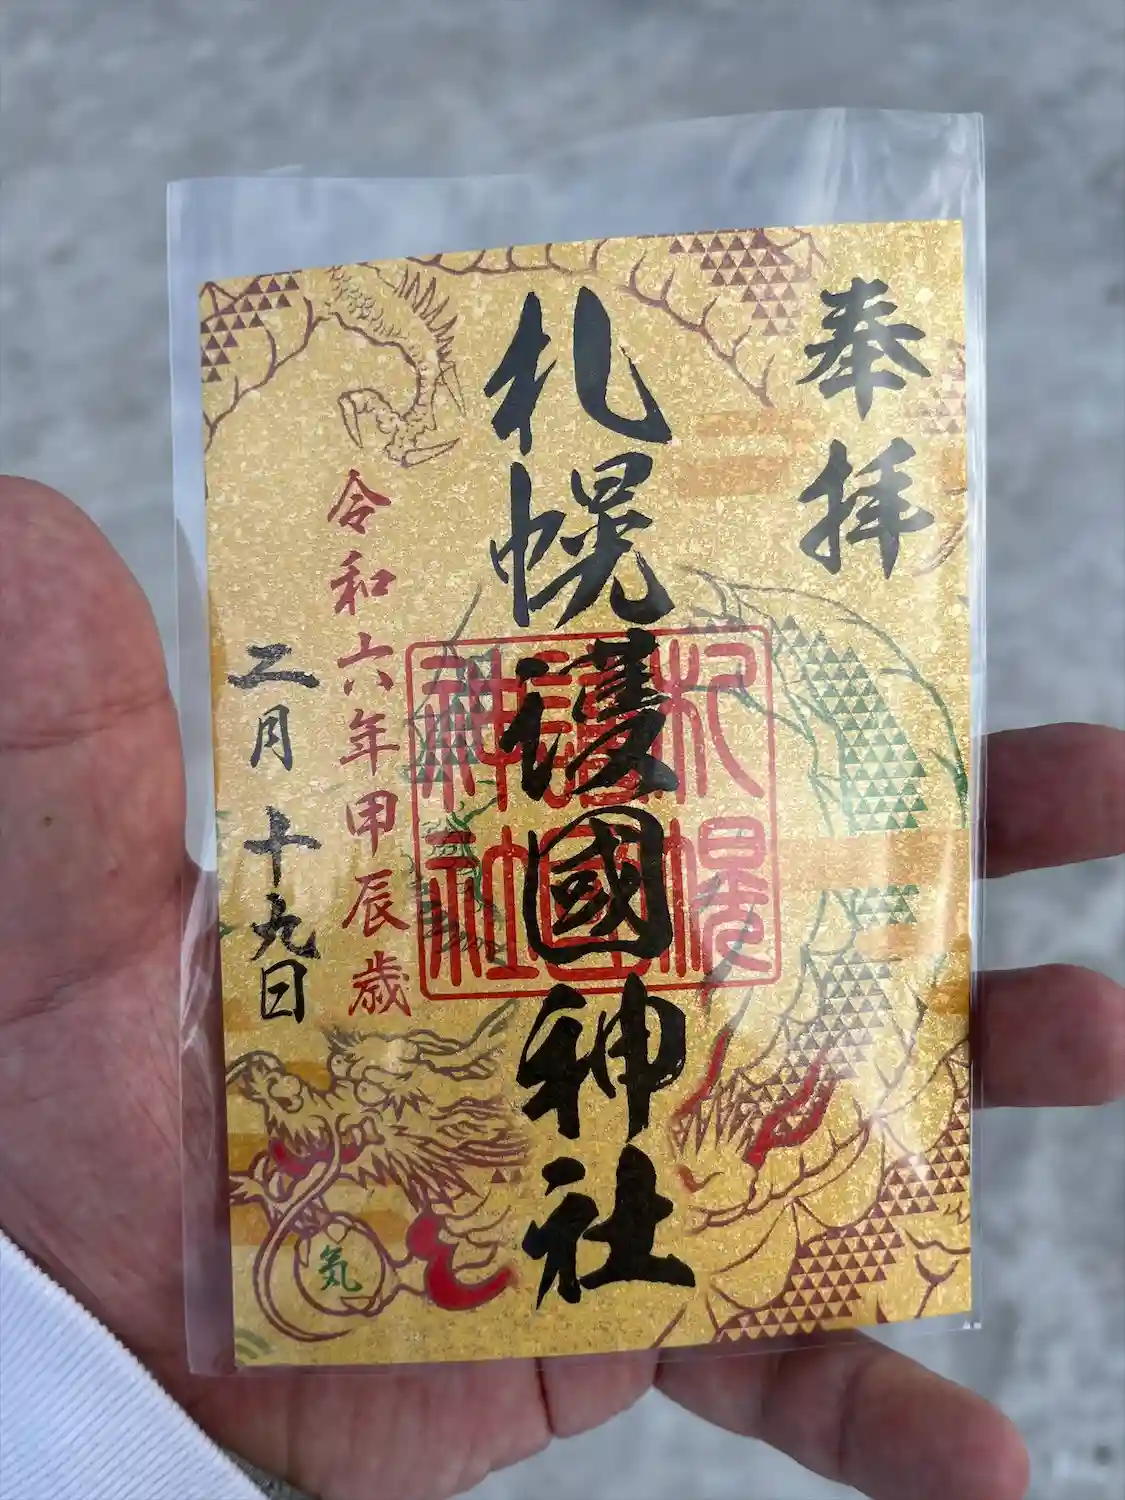 奉拝
札幌護國神社
札幌
護國
神社
令和六年甲辰歳
二月十九日
気